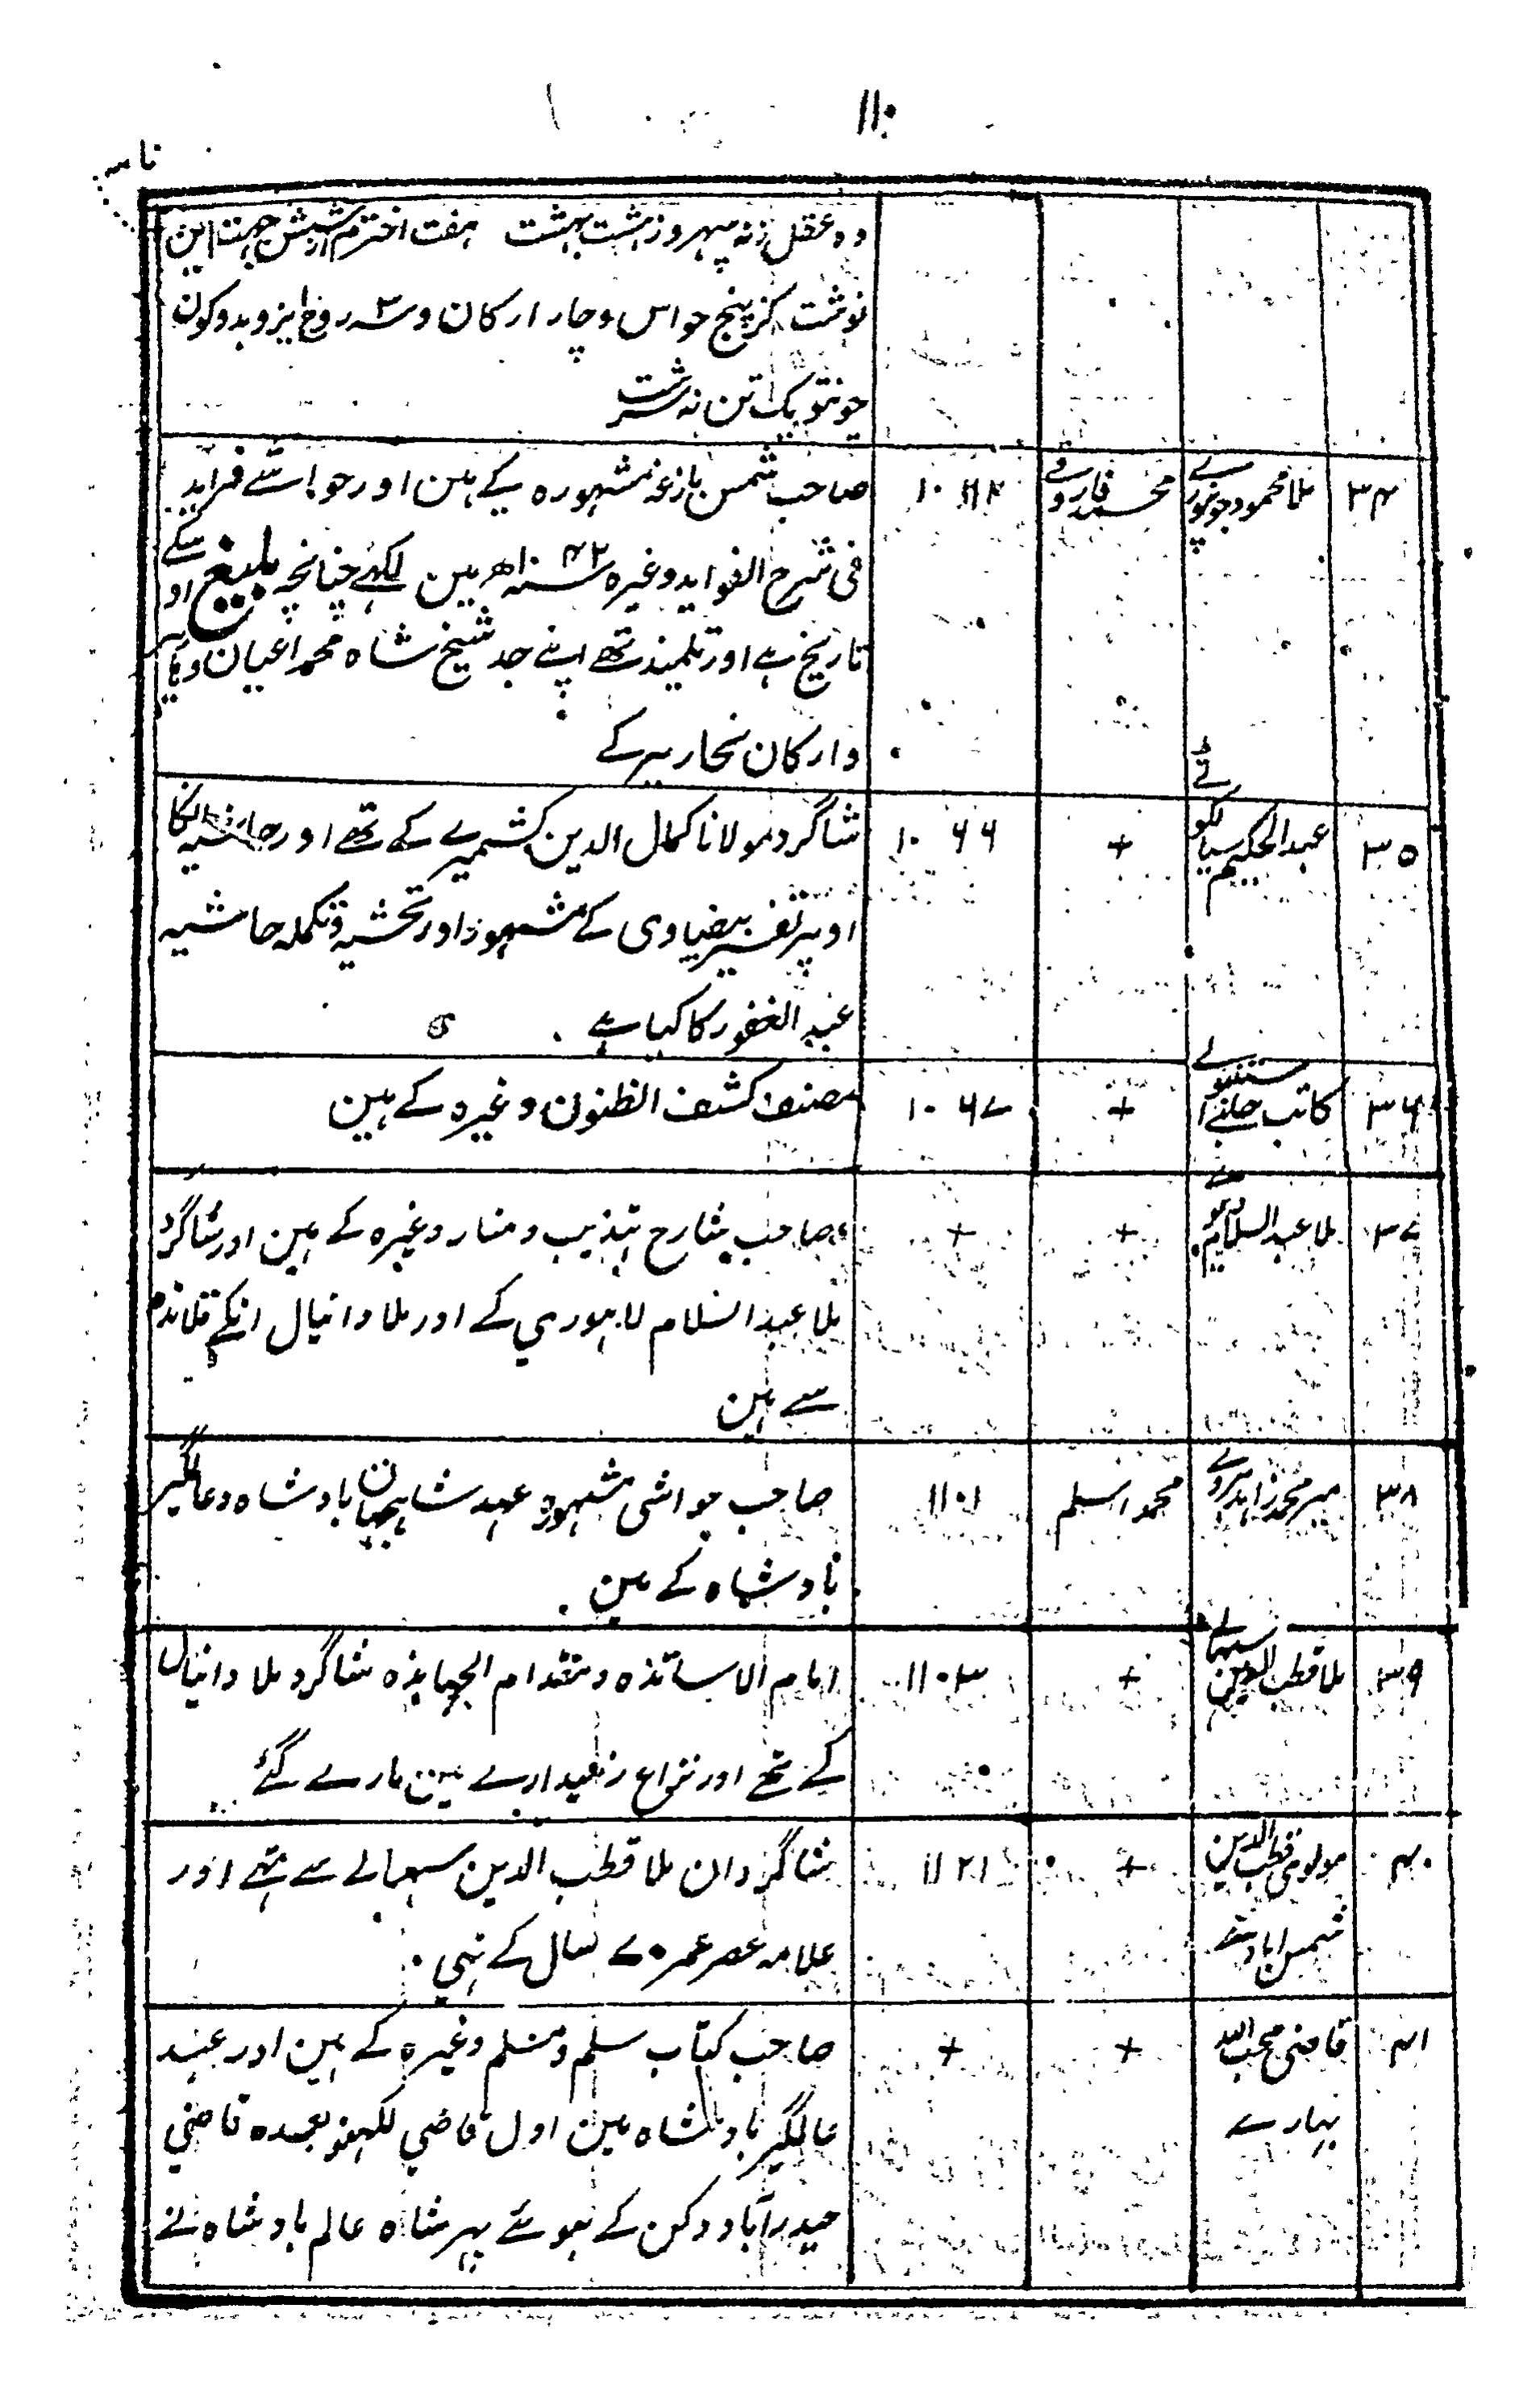 ۱۱۰
نامہ
دہ عقل ز نہ سپہر و ز ہشت بہشت ہفت اخترم از شش جہت این
نوشت کز پنج حواس و چار ارکان و سہ روح ایزد بدو کون
چونتو یک تن نہ سرشت
۳۴ ملا محمود جونپورے محمد فاروقے ۱۰۶۲ صاحب شمس بازغہ مشہورہ کے ہین اور حواشے فراید
فی شرح الفواید وغیرہ ۱۰۴۲ سنہ ھ مین لکہے چنانچہ بلیغ اوسکے
تاریخ ہے اور تلمیذ تھے اپنے جد شیخ شاہ محمد اعیان
وارکان نحاریر کے
۳۵ عبدالحکیم سیالکوٹے + ۱۰۶۶ شاگرد مولانا کمال الدین کشمیرے کے تھے اور حاشیہ انکا
اوپر تفسیر بیضاوی کے مشہور اور تحشیہ و تکملہ حاشیہ
عبد الغفور کا کیا ہے
۳۶ کاتب چلپے استنبولے + ۱۰۶۷ مصنف کشف الظنون وغیرہ کے ہین
۳۷ ملا عبدالسلام دیوے + + صاحب شارح تہذیب و منار وغیرہ کے ہین اور شاگرد
ملا عبد السلام لاہوری کے اور ملا دانیال انکے تلامذہ
سے ہین
۳۸ میر محمد زاہد ہروے محمد اسلم ۱۱۰۱ صاحب حواشی مشہورہ عہد شاہجہان بادشاہ و عالمگیر
بادشاہ کے ہین
۳۹ ملا قطب الدین سہالے + ۱۱۰۳ امام الاساتذہ و مقدام الجہابذہ شاگرد ملا دانیال
کے تھے اور نزاع زمیندارے مین مارے گئے
۴۰ مولوی قطب الدین + ۱۱۲۱ شاگردان ملا قطب الدین سہالے سے تہے اور
شمس ابادے علامہ عصر عمر ۷۰ سال کے تہی
۴۱ قاضی محب اللہ + + صاحب کتاب سلم و مسلم وغیرہ کے ہین اور عہد
بہارے عالمگیر بادشاہ مین اول قاضی لکہنو بعدہ قاضی
حیدرآباد دکن کے ہوئے پہر شاہ عالم بادشاہ نے